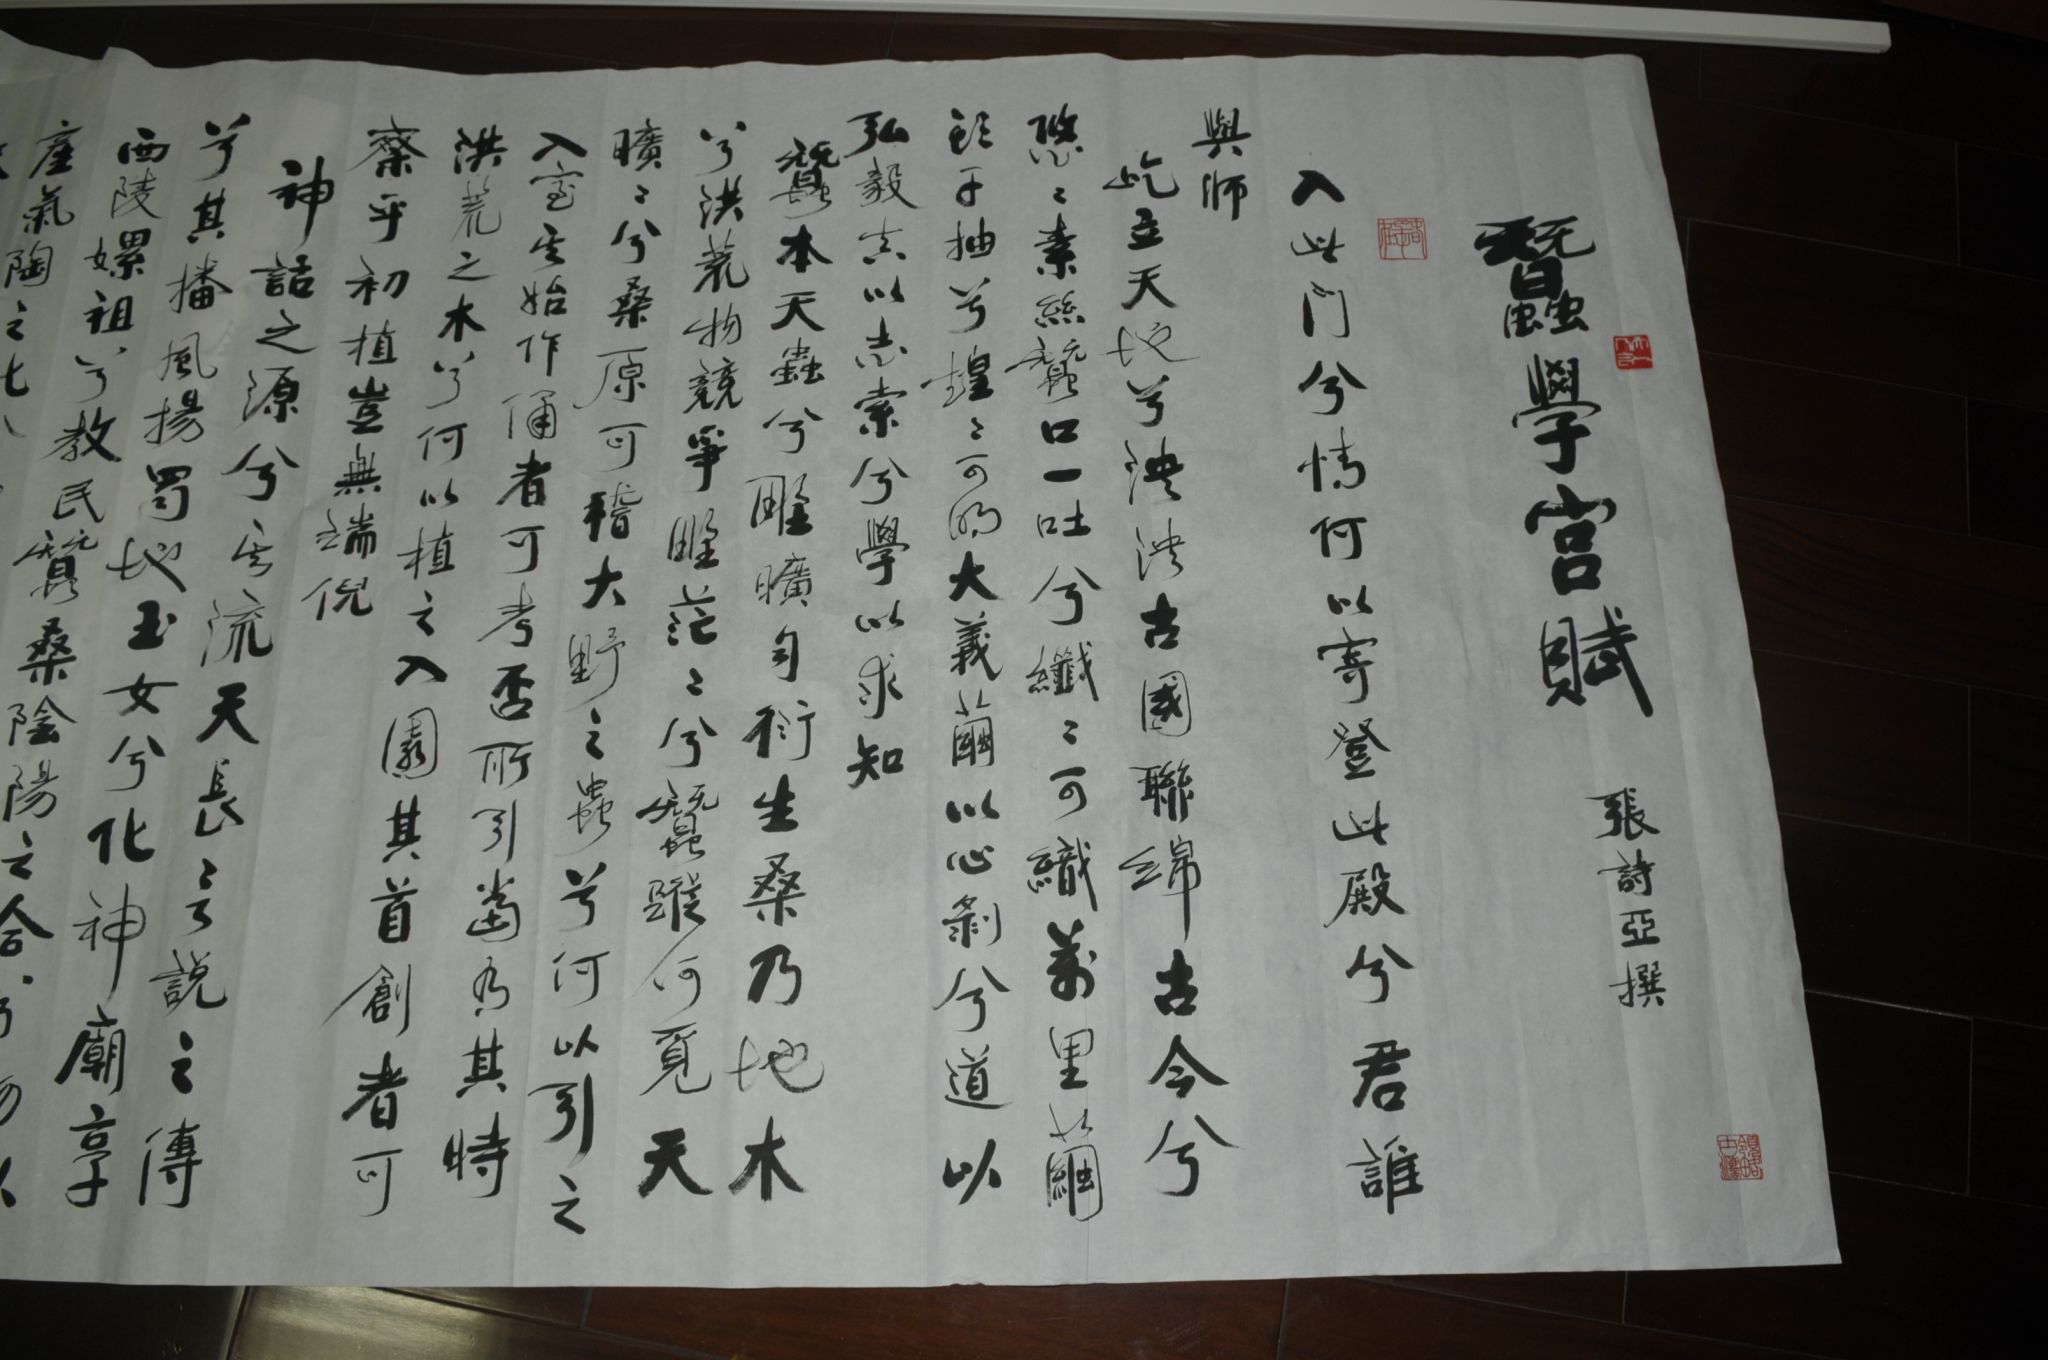 蠶學宮賦
張詩亞撰
入此門兮情何以寄登此殿兮君誰
與師
屹立天地兮泱泱古國聯綿古今兮
悠〻素絲蠶口一吐兮纖〻可織萬里繭
抽兮煌〻可的大義繭以心剝兮道以
弘毅志以志索兮學以求知
蠶本天蟲兮雎曠勻衍生桑乃地木
兮洪荒物競爭雎茫〻兮蠶蹤何覓天
曠〻兮桑原可稽大野之蟲兮何以引之
入室始作俑者可考否所引當為其時
洪荒之木兮何以植之入園其首創者可
察乎初植豈無端倪
神話之源兮流天長〻說之傳
兮其播風揚蜀地玉女兮化神廟享
西陵嫘祖兮教民蠶桑陰陽之合
產氣陶之